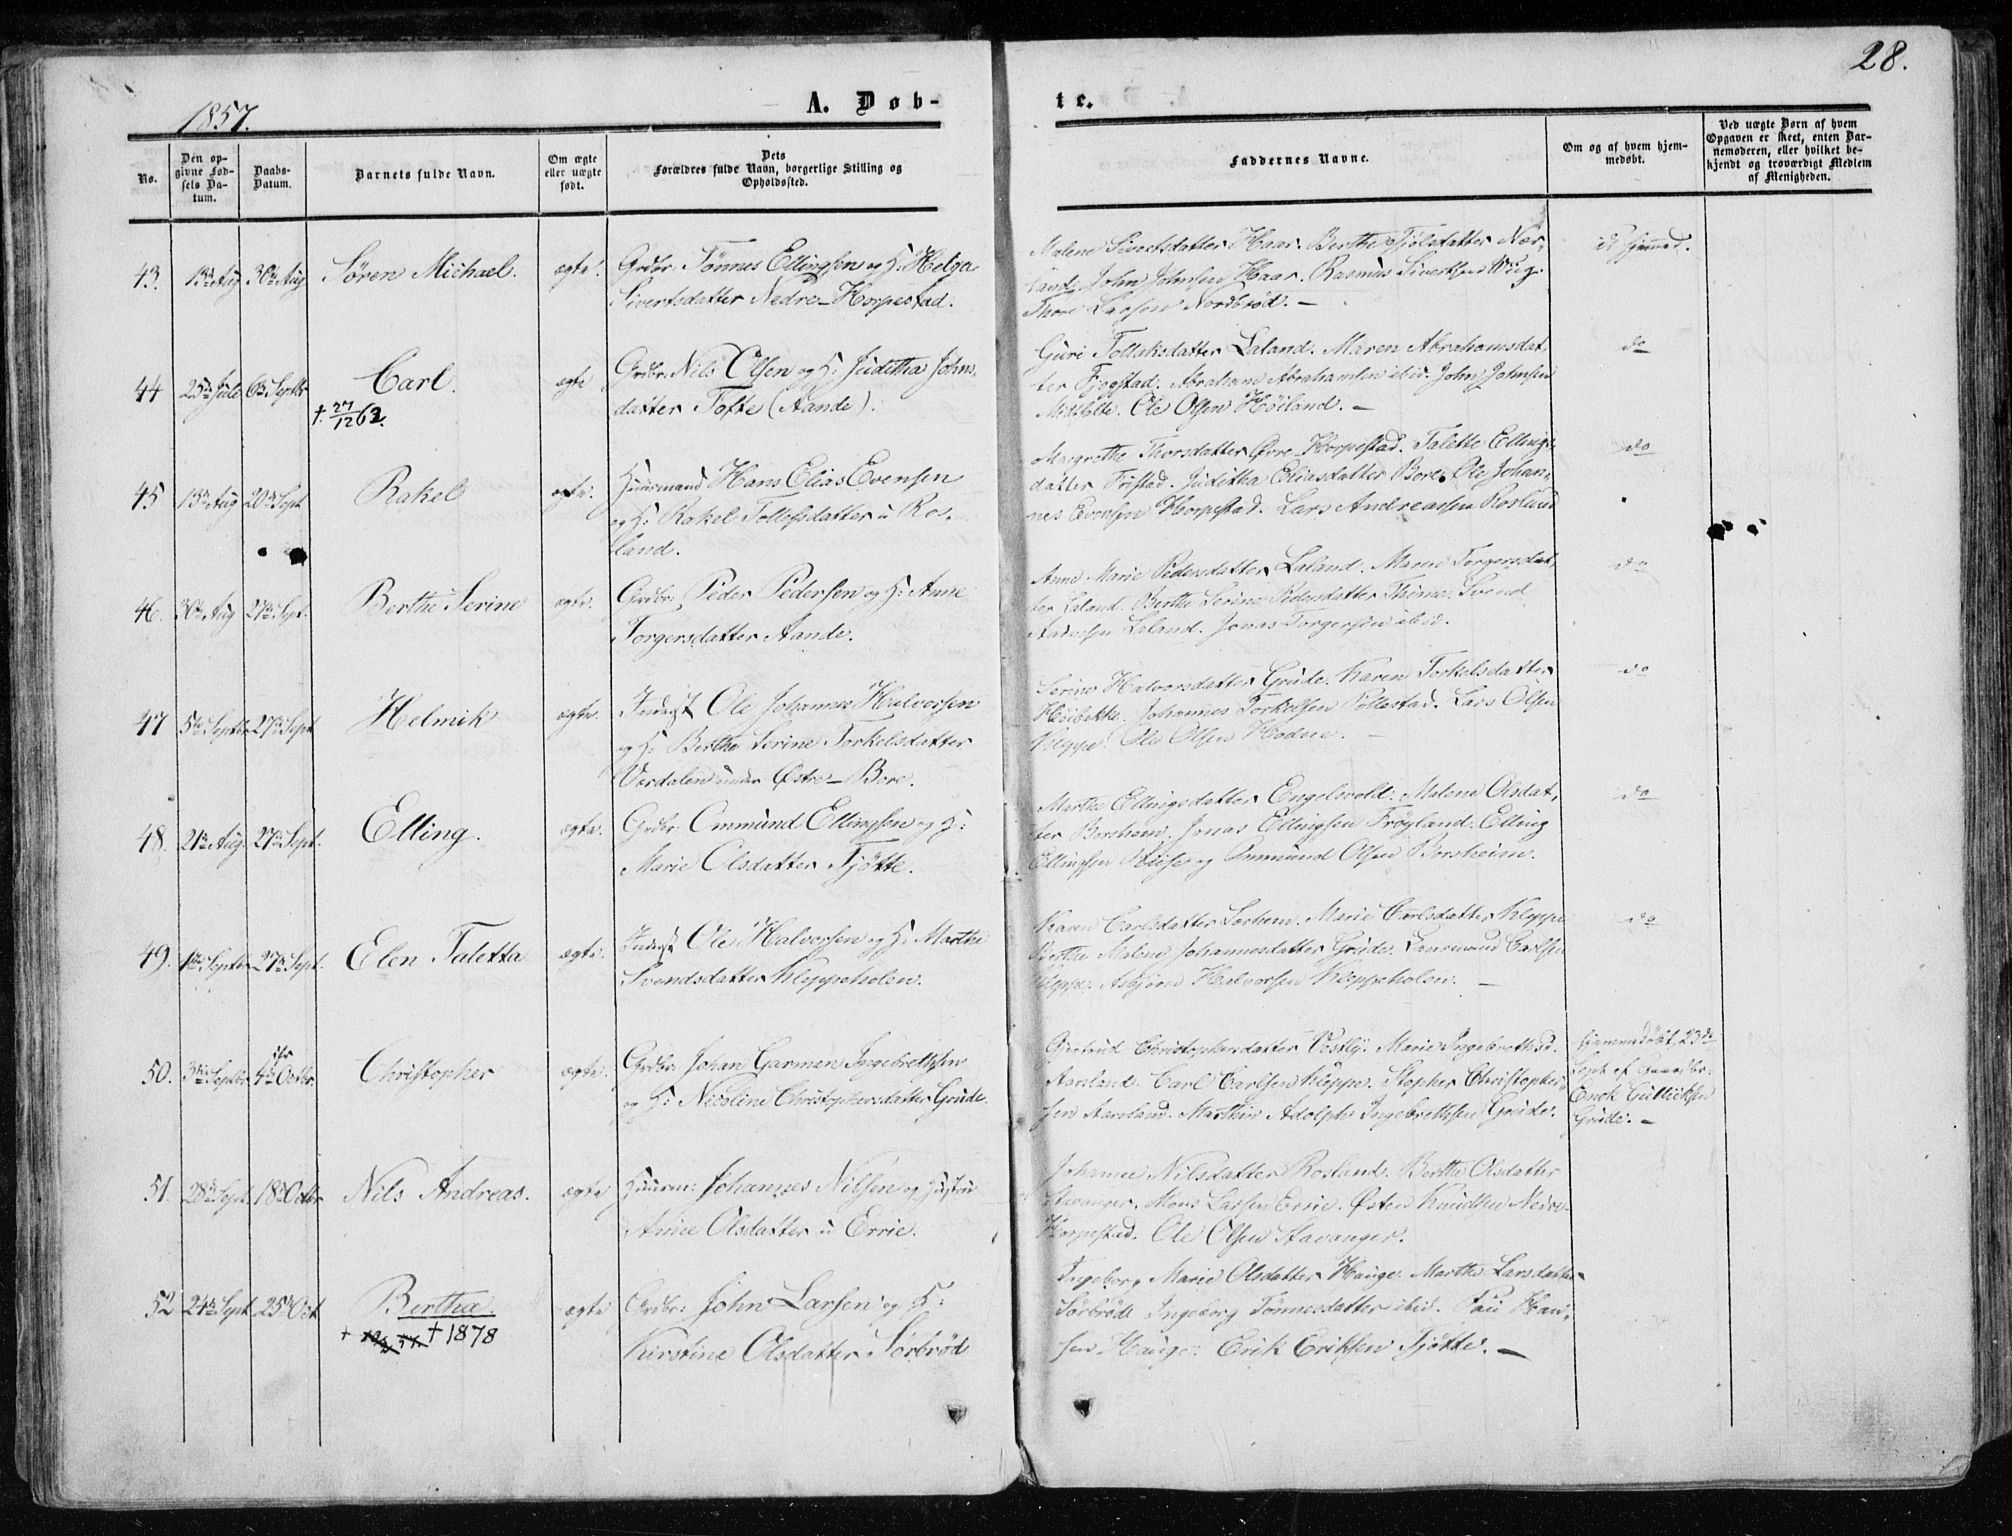 28.
1857.
A. Døb-
te.
No.
Den op-
givne Fød-
sels Da-
tum.
Daabs-
Datum.
Barnets fulde Navn.
Om ægte
eller uægte
født.
Dets
Forældres fulde Navn, borgerlige Stilling og
Opholdssted.
Faddernes Navne.
Om og af hvem hjem-
medøbt.
Ved uægte Børn af hvem
Opgaven er skeet, enten Bar-
nemoderen, eller hvilket be-
kjendt og troværdigt Medlem
af Menigheden.
43. 13de Aug 30te Aug Søren Michael. ægte.
Grdbr: Tønnes Ellingsen og H: Helga
Sivertsdatter Nedre-Horpestad.
Malene Sivertsdatter Haar. Berthe Tjølsdatter Nær-
land. John Johnsen Haar. Rasmus Sivertsen
Thore Larsen Nordbrød. —
44 25de Juli 6te Septbr Carl. ægte
† 27/12 62.
Grdbr. Nils Olsen og H: Juditha Johns-
datter Tofte (Aande).
Guri Tollaksdatter Laland. Maren Abrahamsdat-
ter Fogstad. Abraham Abrahamsen ibid. John Johnsen
Ole Olsen Høiland. —
do
45 13de Aug 20de Sept Rakel ægte.
Huusmand Hans Elias Evensen
og H: Rakel Tollefsdatter u Ros-
land.
Margrethe Thorsdatter Øvre-Horpestad. Talette Ellings-
datter Fristad. Juditha Eliasdatter Bore. Ole Johan-
nes Evensen Horpestad. Lars Andreassen Rosland
do
46. 30te Aug 27de Sept. Berthe Serine ægte.
Grdbr: Peder Pedersen og H: Anne
Torgersdatter Aande.
Anne Marie Pedersdatter Laland. Maren Torgersdat-
ter Laland. Berthe Serine Pedersdatter Thime. Svend
Laland. Jonas Torgersen ibid.
do
47 5te Septbr 27de Sept Helmik ægte.
Inderst Ole Johannes Halvorsen
og H: Berthe Serine Torkelsdatter
Verdalen under Østre-Bore.
Serine Halvorsdatter Grude. Karen Torkelsdatter
Johannes Torkelsen Pollestad. Lars Olsen
Kleppe. Ole Olsen Hodne. —
do
48. 21de Aug. 27de Sept. Elling. ægte.
Grdbr: Ommund Ellingsen og H:
Marie Olsdatter Tjøtte.
Marthe Ellingsdatter Engelsvold. Malene Olsdat-
ter Borsheim. Jonas Ellingsen Frøyland. Elling
Ellingsen og Ommund Olsen Borsheim.
do
49. Septbr 27de Sept. Elen Taletta ægte.
Inderst Ole Halvorsen og H: Marthe
Svendsdatter Kleppeholen.
Karen Carlsdatter Sørhem. Marie Carlsdatter Kleppe
Berthe Malene Johannesdatter Grude. Carlsen
Kleppe. Asbjørn Halvorsen Kleppeholen. —
do
50. 3die Septbr. 4de Octbr. Christopher ægte.
Grdbr: Johan Garmen Ingebretsen
og H: Nicoline Christophersdatter Grude.
Gjertrud Christophersdatter Vestly. Marie Ingebrethsd.
Aarsland. Carl Carlsen Kleppe. Stopher Christopher-
sen Aarsland. Marthin Adolph Ingebrethsen Grude.
hjemmedøbt 23de
Sept af Gaardbr:
Enok Gulliksen
Grude. —
51. 28de Sept. 18de Octbr Nils Andreas. ægte
Huusm: Johannes Nilsen og Hustru
Anne Olsdatter u Errie.
Johanne Nilsdatter Rosland. Berthe Olsdatter
Stavanger. Mons Larsen Errie. Østen Knudsen Nedre-
Horpestad. Ole Olsen Stavanger.
52 24de Sept 25de Oct Bertha. ægte
† 1878
Grdbr: John Larsen og H:
Kirstine Olsdatter Sørbrød
Ingeborg Marie Olsdatter Hauge. Marthe Larsdatter
Sørbrød. Ingeborg Tønnesdatter ibid. Han-
sen Hauge. Erik Eriksen Tjøtte. —